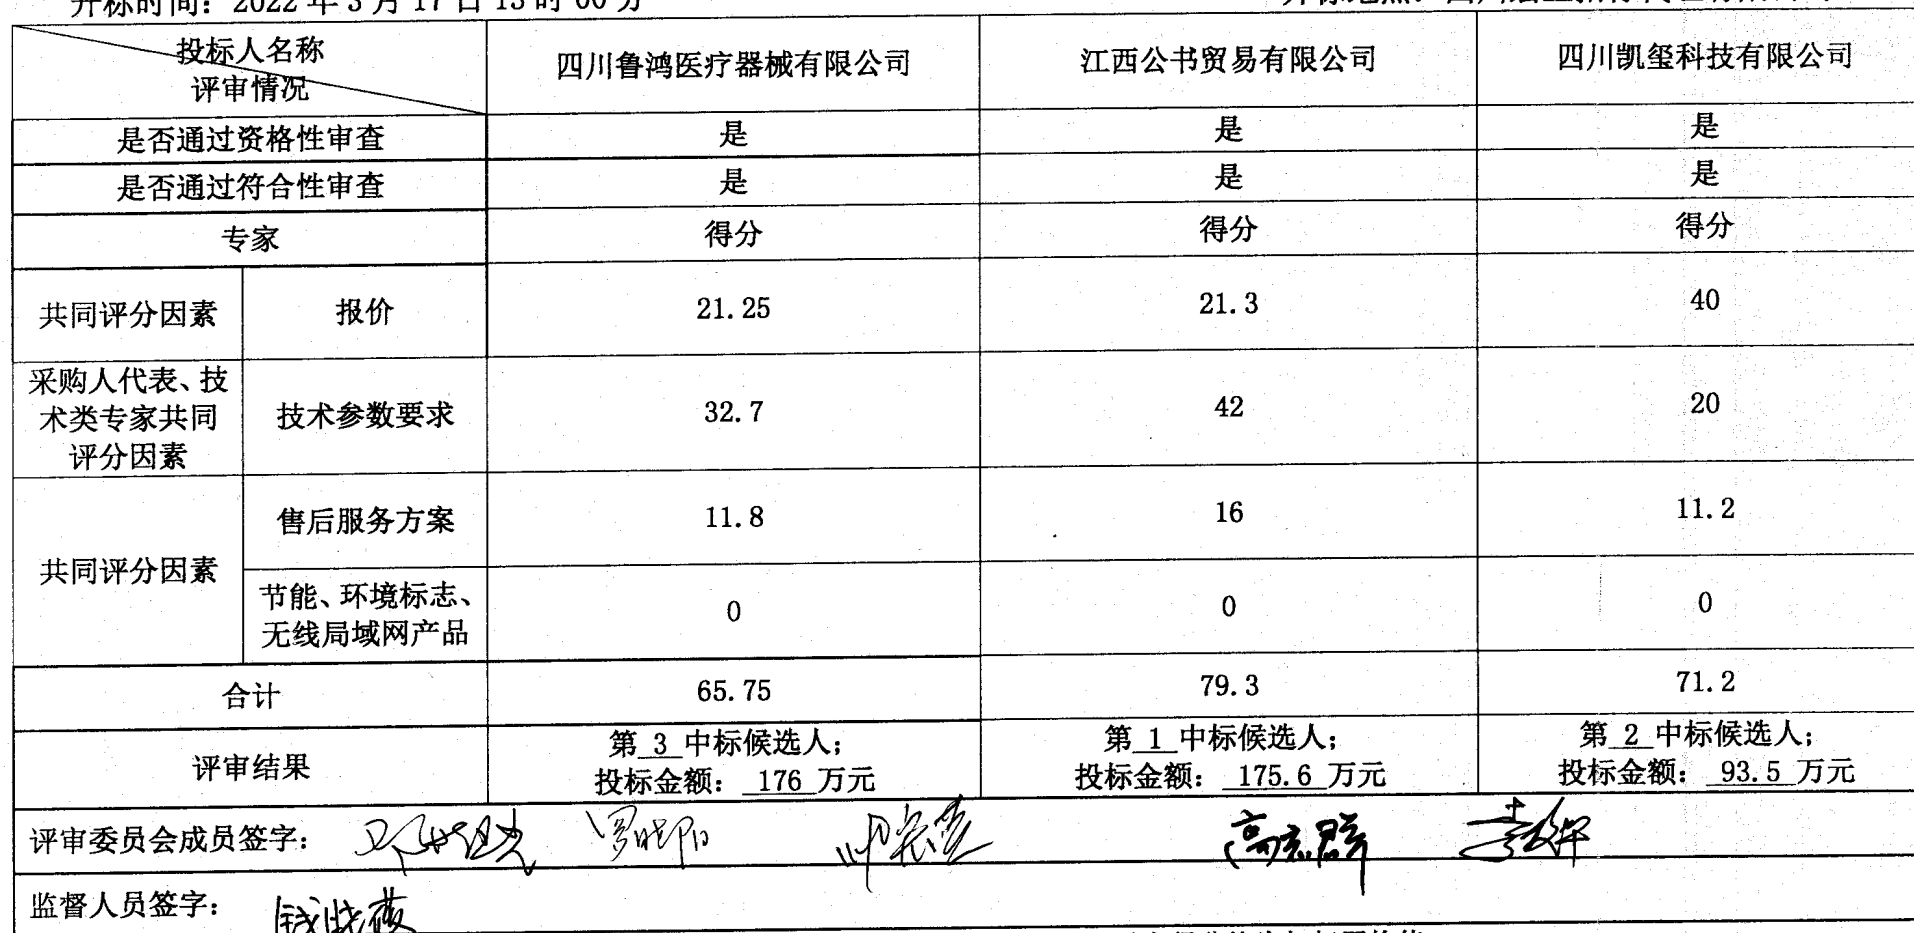 开标时间：2022 年 3 月 17 日 13 时 00 分
投标人名称
评审情况
四川鲁鸿医疗器械有限公司
江西公书贸易有限公司
四川凯玺科技有限公司
是否通过资格性审查 是 是 是
是否通过符合性审查 是 是 是
专家 得分 得分 得分
共同评分因素 报价 21.25 21.3 40
采购人代表、技
术类专家共同
评分因素
技术参数要求 32.7 42 20
共同评分因素
售后服务方案 11.8 16 11.2
节能、环境标志、
无线局域网产品
0 0 0
合计 65.75 79.3 71.2
评审结果
第 3 中标候选人；
投标金额： 176 万元
第 1 中标候选人；
投标金额： 175.6 万元
第 2 中标候选人；
投标金额： 93.5 万元
评审委员会成员签字：
监督人员签字：